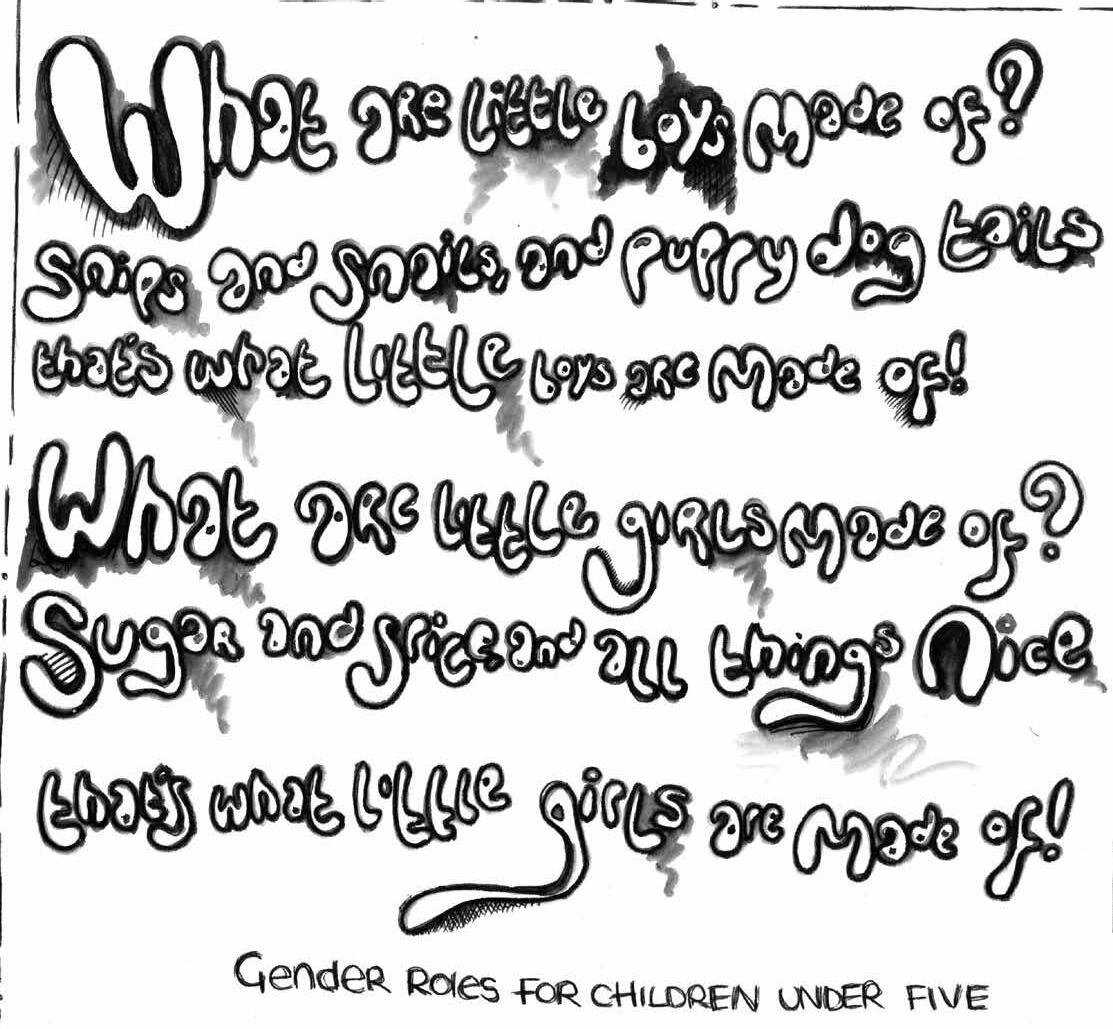 What are little boys made of?
Snips and snails, and puppy dog tails
that's what little boys are made of!
What are little girls made of?
Sugar and spice, and all things nice
that's what little girls are made of!
Gender Roles for CHILDREN UNDER FIVE